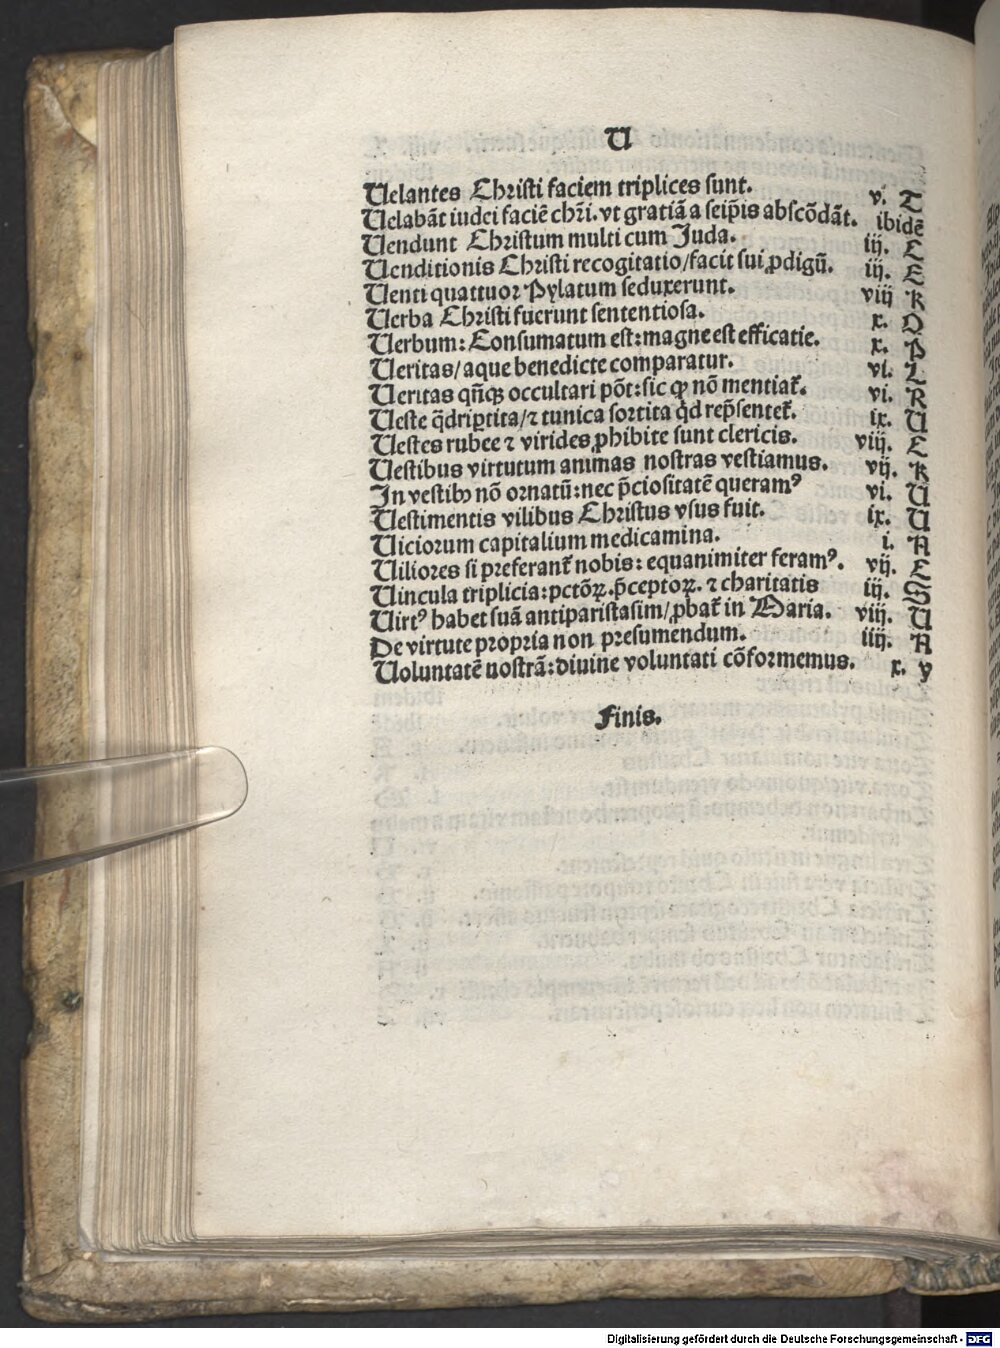 U
Uelantes Christi faciem triplices sunt. v. T
Uelabāt iudei faciē chr̄i. vt gratiā a seip̄is abscōdāt. ibidē
Uendunt Christum multi cum Juda. iij. C
Uenditionis Christi recogitatio/facit sui ꝓdigū. iij. E
Uenti quattuor Pylatum seduxerunt. viij K
Uerba Christi fuerunt sententiosa. x. O
Uerbum: Consumatum est: magne est efficatie. x. P
Ueritas/aque benedicte comparatur. vi. L
Ueritas qn̄qꝫ occultari pōt: sic ꝙ nō mentiat᷑. vi. R
Ueste q̄dripartita/⁊ tunica sortita qd̄ rep̄sentet᷑. ix. U
Uestes rubee ⁊ virides ꝓhibite sunt clericis. viij. E
Uestibus virtutum animas nostras vestiamus. vij. K
In vestibꝫ nō ornatū: nec p̄ciositatē queramꝰ vi. U
Uestimentis vilibus Christus vsus fuit. ix. U
Uiciorum capitalium medicamina. i. A
Uiliores si preferant᷑ nobis: equanimiter feramꝰ. vij. E
Uincula triplicia: pctōꝝ. p̄ceptoꝝ. ⁊ charitatis iij. S
Uirtꝰ habet suā antiparistasim/ꝓbat᷑ in Maria. viij. U
De virtute propria non presumendum. iiij. A
Uoluntatē nostrā: diuine voluntati cōformemus. x. y
Finis.
Digitalisierung gefördert durch die Deutsche Forschungsgemeinschaft - DFG